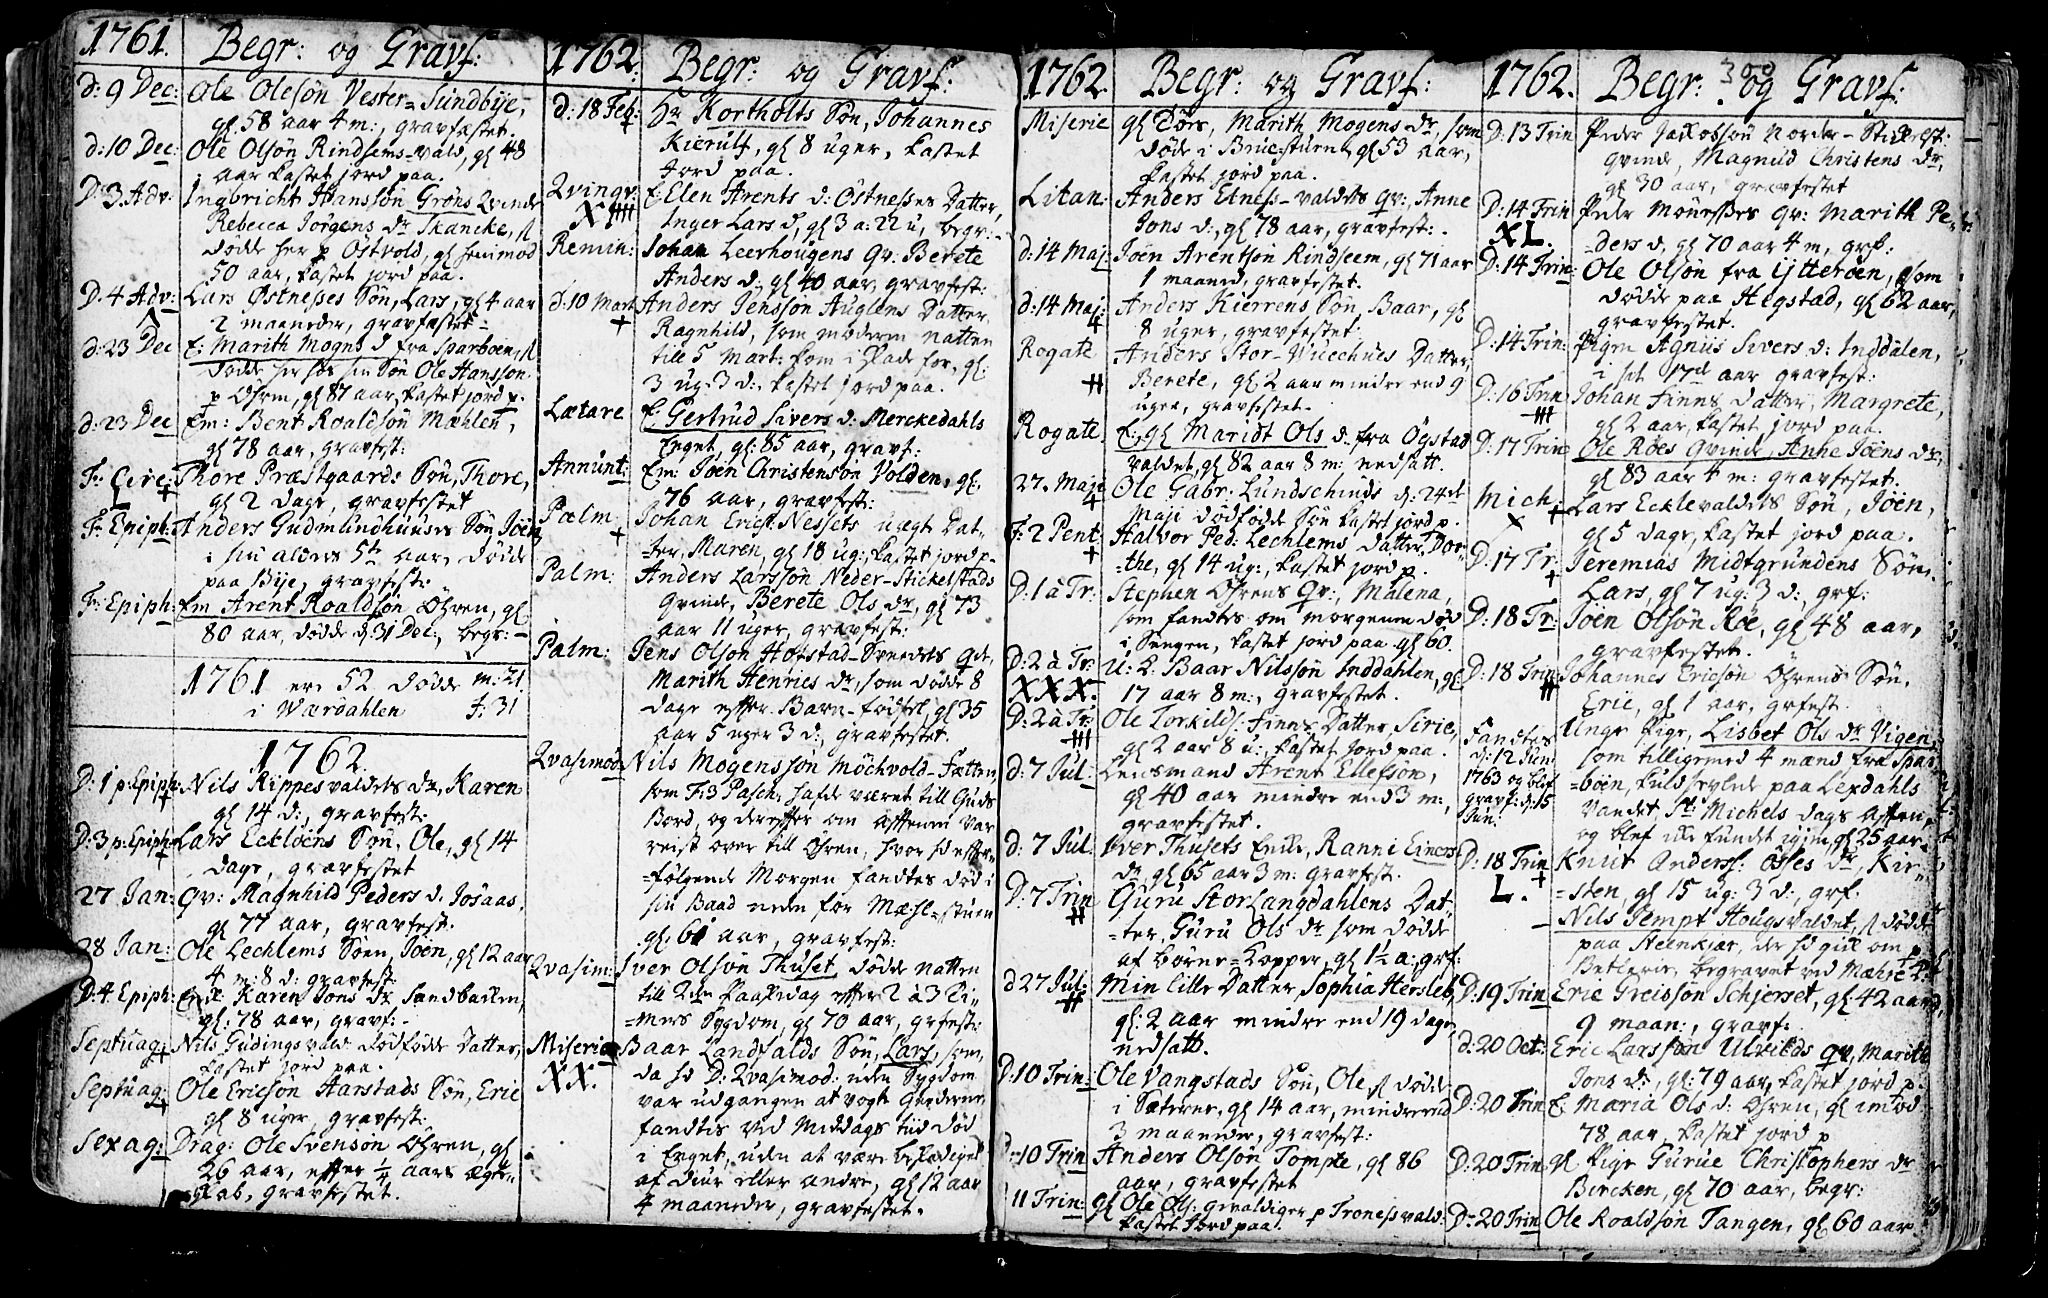 1761. Begr: og Gravf:
d: 9 Dec: Ole Olesøn Vester-Sundbÿe,
gl. 58 aar 4 m:, gravfæstet.
d: 10 Dec: Ole Olsøn Rindsems-vald, gl 48
aar kastet jord paa.
D: 3 Adv: Ingbricht Hanssøn Grøns Qvinde
Rebecca Jørgens dr Skancke,
døde her p Østvold, gl henimod
50 aar, kastet jord paa.
D: 4 Adv: Lars Østnesses Søn, Lars, gl 4 aar
2 maaneder, gravfæstet
d: 23 Dec E: Marith Mogns d fra Sparboen,
døde her hos sin Søn Ole Hansson
p Øhren, gl 87 aar, kastet jord p.
d: 23 Dec Em: Bent Roaldsøn Mæhlen,
gl 78 aar, gravfest:
F: Circ: Thore Præstgaards Søn, Thore,
gl 2 dage, gravfestet
F: Epiph: Anders Gudmundhuuses Søn Joen
i sin alders 5te aar, døde
paa Bÿe, gravfest:
F: Epiph: Em Arent Roaldsøn Øhren, gl
80 aar, døde d: 31 Dec:, begr:
1761 ere 52 døde m: 21
i Wærdahlen f: 31
1762.
D: 1 p: Epiph: Nils Kippesvaldets dr, Karen
gl 14 d:, gravfest:
D: 3 p: Epiph: Lars Eckloens Søn, Ole, gl 14
dage, gravfestet
27 Jan: Qv: Magnhild Peders d. Josaas,
gl 77 aar, gravfest.
28 Jan: Ole Lechlems Søn, Joen, gl 12 aar
4 m: 8 d: gravfest:
D: 4 Epiph: Enk Karen Jons dr Sandbacken,
gl: 78 aar, gravf:
Septuag: Nils Gudings vald dødfødde Datter,
kastet jord paa.
Septuag: Ole Ericsøn Harstads Søn, Eric
gl 8 uger, gravfest:
Sexag: Drag: Ole Svensøn Øhren, gl
26 aar, efter 1/4 aars ægte-
skab, gravfestet.
1762. Begr: og Gravf:
d: 18 Feb: Hr Kortholts Søn, Johannes
Kierulf, gl 8 uger, kastet
Jord paa.
Qvinqv: E: Elen Arents d: Østnesses Datter,
XIIII Inger Lars d, gl 3 a: 22 u, begr:
Remin: Johan Leerhougens Qv: Berete
Anders d: gl 40 aar, gravfest:
d: 10 Mart Anders Jenssøn Auglens Datter
Ragnhild, som moderen natten
till 5 Mart: kom i skade for, gl:
3 ug: 3 d:, kastet jord paa.
Lætare E: Gertrud Sivers d: Merckedahls
Enget, gl: 85 aar, gravf:
Annunt: Em: Joen Christensøn Volden, gl:
76 aar, gravfest:
Palm Johan Erics: Nessets uægte Dat-
ter, Maren, gl 18 ug:, kastet jord p
Palm: Anders Larssøn Neder-Stickelstads
Qvinde, Berete Ols dr, gl 73
aar 11 uger, gravfest:
Palm: Jens Olsøn Hofstad-Sveedets Qv:
Marith Henrics dr, som døde 8
dage efter Barn-fødsel, gl 35
aar 5 uger 3 d:, gravfestet.
Qvasimod: Nils Mogenssøn Mochvold-Fætten
som F: 3 Pasch: hafde været till Guds
Bord, og derefter om afftenen var
reist over till Øhren, hvor hd effter-
følgende Morgen fandtes død i
sin Baad neden for Mæhle-støen
gl: 61 aar, gravfest:
Qvasim: Iver Olsøn Thuset, døde natten
till 2den Paaskedag efter 2 à 3 Ti-
mers Sygdom, gl 70 aar, grfest:
Miseric Baar Landfalds Søn, Lars, som,
XX. da hd D: Qvasimod: uden Sygdom
var udgangen at vogte Giederne,
fandtes ved Middags tiid død
i Enget, uden at være beskadiget
af diur eller andre, gl 12 aar
4 maaneder, gravfestet.
1762. Begr: og Gravf:
Miseric gl Tørs, Marith Mogens dr, som
døde i Brue-stuen gl 53 aar,
kastet jord paa.
Litan: Anders Elness-valdets Qv:, Anne
Jons d:, gl 78 aar, gravfest:
d: 14 Maj Joen Arentsøn Rindseem, gl 71 aar
1 maaned, gravfestet.
d: 14 Maj: Anders Kierrens Søn, Baar, gl
8 uger, gravfestet
Rogate Anders Stor-Vuechues Datter,
Berete, gl 2 aar mindre end 9
uger, gravfestet.
Rogate E: gl Maridt Ols d: fra Øgstad
valdet, gl 82 aar 8 m: nedsatt.
27. Maji Ole Gabr: Lundschinds d: 24de
Maji dødfødde Søn kastet jord p.
F: 2 Pent Halvor Ped: Lechlems Datter, Dor-
the, gl 14 ug:, kastet jord p.
D: 1 à Tr: Stephen Øhrens Qv:, Malena,
som fandtes om morgenen død
i Sengen, kastet jord paa gl 60.
D: 2 à Tr: U: K: Baar Nilssøn Inddahlen, gl:
XXX. 17 aar 8 m:, gravfestet.
D: 2 à Tr: Ole Torkilds: Finns Datter Sirie,
gl 2 aar 8 u:, kastet Jord paa.
d: 7 Jul: Lensmand Arent Ellefsøn,
gl 40 aar mindre end 3 m:,
gravfestet.
d: 7 Jul Iver Thusets Enke, Ranni Einers
dr, gl 65 aar 3 m: gravfest.
D: 7 Trin Guru StorLangdahlens Dat-
ter, Guru Ols dr som døde
af Børne-Kopper, gl 1½ a: grf:
d 27 Jul: Min lille Datter, Sophia Hersleb,
gl: 2 aar mindre end 19 dage,
nedsatt.
D: 10 Trin: Ole Vangstads Søn, Ole, døde
i Sæteren, gl 14 aar, mindre end
3 maaneder, gravfest:
D: 10 Trin Anders Olsøn Tompte, gl 86
aar, gravfestet
11 Trin: gl Ole Ols: gevaldiger p Troness vald:
kastet Jord paa.
1762. Begr: og Gravf: 300
D: 13 Trin Peder Jacobssøn Norder-Stickelst:
Qvinde, Magnild Christens dr,
gl 30 aar, gravfestet
D: 14 Trin Peder Mønesses Qv: Marith Pe-
XL. ders d, gl 70 aar 4 m, grf:
D: 14 Trin: Ole Olsøn fra Ytterøen, som
døde paa Hegstad, gl 62 aar,
gravfestet.
D: 14 Trin: Pigen Agnis Sivers d: Inddalen,
i sit 17de aar gravfest:
D: 16 Trin Johan Finns Datter, Margrete,
gl 2 aar, kastet jord paa.
D: 17 Trin Ole Roes Qvinde, Anne Joens dr,
gl 83 aar 4 m: gravfestet.
Mich: Lars Ecklevaldets Søn, Joen,
gl 5 dage, kastet jord paa.
D: 17 Tr: Jeremias Midtgrundens Søn,
Lars, gl 7 ug: 3 d:, grf:
D: 18 Tr: Joen Olsøn Roe, gl 48 aar,
gravfestet.
D: 18 Trin: Johannes Ericsøn Øhrens Søn,
Eric, gl 1 aar, grfest.
Fandtes d: 12 Jun: 1763 og blef gravf: d: 15 Jun. Unge Pige, Lisbet Ols dr Vigen,
som tilligemed 4 mænd fra Spar-
boen, kuldseylede paa Lexdahls
vandet, St: Michels dags afften,
og blef ikke fundet igien, gl 25 aar
D: 18 Trin Knut Anderss: Østes dr, Kir-
L. sten, gl 15 ug: 3 d:, grf:
Nils Jempt Hougsvaldet, døde
paa Steenkiær, der hd gik om p
Betlerie, begravet ved Mæhre K:
D: 19 Trin Eric Greissøn Schjerset, gl 42 aar
9 maan:, gravf:
d: 20 Oct: Eric Larssøn Ulvilds Qv, Marith
Jons d:, gl: 79 aar, kastet jord p:
D: 20 Trin E: Maria Ols d: Øhren, gl imod
78 aar, kastet jord p
D: 20 Trin gl Pige Gurue Christophers dr
Bircken, gl 70 aar, begr:
D: 20 Trin Ole Roaldsøn Tangen, gl 60 aar